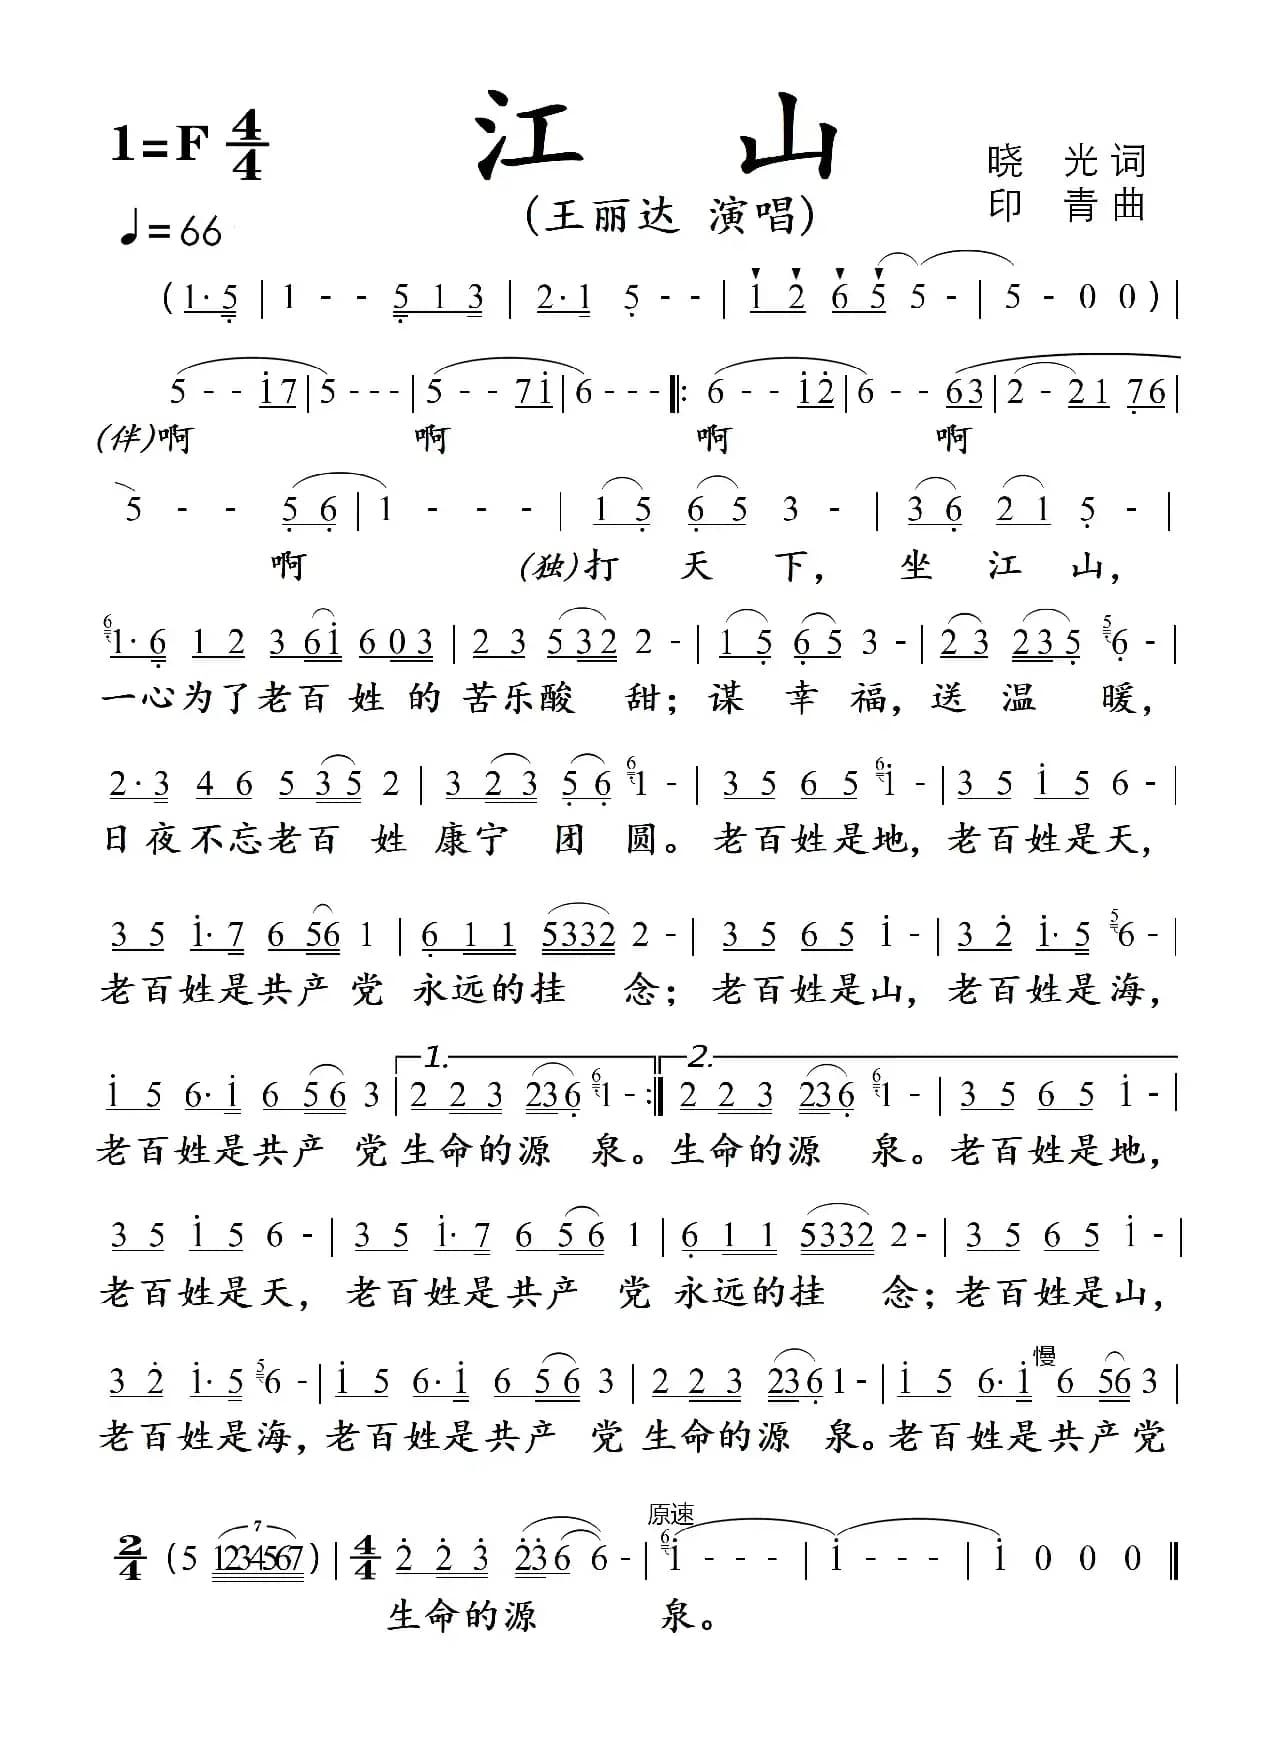 1=F 4/4
江 山
晓 光 词
♩=66
(王丽达 演唱)
印 青 曲
(1·5 | 1 - - 5 1 3 | 2·1 5 - - | 1 2 6 5 5 - | 5 - 0 0 ) |
5 - - i 7 | 5 - - - | 5 - - 7 i | 6 - - - ‖: 6 - - i 2 | 6 - - 6 3 | 2 - 2 1 7 6 |
(伴)啊 啊 啊 啊
5 - - 5 6 | 1 - - - | 1 5 6 5 3 - | 3 6 2 1 5 - |
啊 (独)打 天 下, 坐 江 山,
6 1·6 1 2 3 6 i 6 0 3 | 2 3 5 3 2 2 - | 1 5 6 5 3 - | 2 3 2 3 5 5 6 - |
一心为了老百 姓 的 苦乐酸 甜; 谋 幸 福, 送 温 暖,
2·3 4 6 5 3 5 2 | 3 2 3 5 6 6 1 - | 3 5 6 5 6 i - | 3 5 i 5 6 - |
日夜不忘老百 姓 康宁 团 圆。 老百姓是地, 老百姓是天,
3 5 i·7 6 5 6 1 | 6 1 1 5 3 3 2 2 - | 3 5 6 5 i - | 3 2 i·5 5 6 - |
老百姓是共产 党 永远的挂 念; 老百姓是山, 老百姓是海,
1. 2.
i 5 6·i 6 5 6 3 | 2 2 3 2 3 6 6 1 - :‖ 2 2 3 2 3 6 6 1 - | 3 5 6 5 i - |
老百姓是共产 党 生命的源 泉。 生命的源 泉。 老百姓是地,
3 5 i 5 6 - | 3 5 i·7 6 5 6 1 | 6 1 1 5 3 3 2 2 - | 3 5 6 5 i - |
老百姓是天, 老百姓是共产 党 永远的挂 念; 老百姓是山,
慢
3 2 i·5 5 6 - | i 5 6·i 6 5 6 3 | 2 2 3 2 3 6 1 - | i 5 6·i 6 5 6 3 |
老百姓是海, 老百姓是共产 党 生命的源 泉。 老百姓是共产党
7 原速
2/4 (5 1 2 3 4 5 6 7 ) | 4/4 2 2 3 2 3 6 6 - | 6 i - - - | i - - - | i 0 0 0 ‖
生命的源 泉。